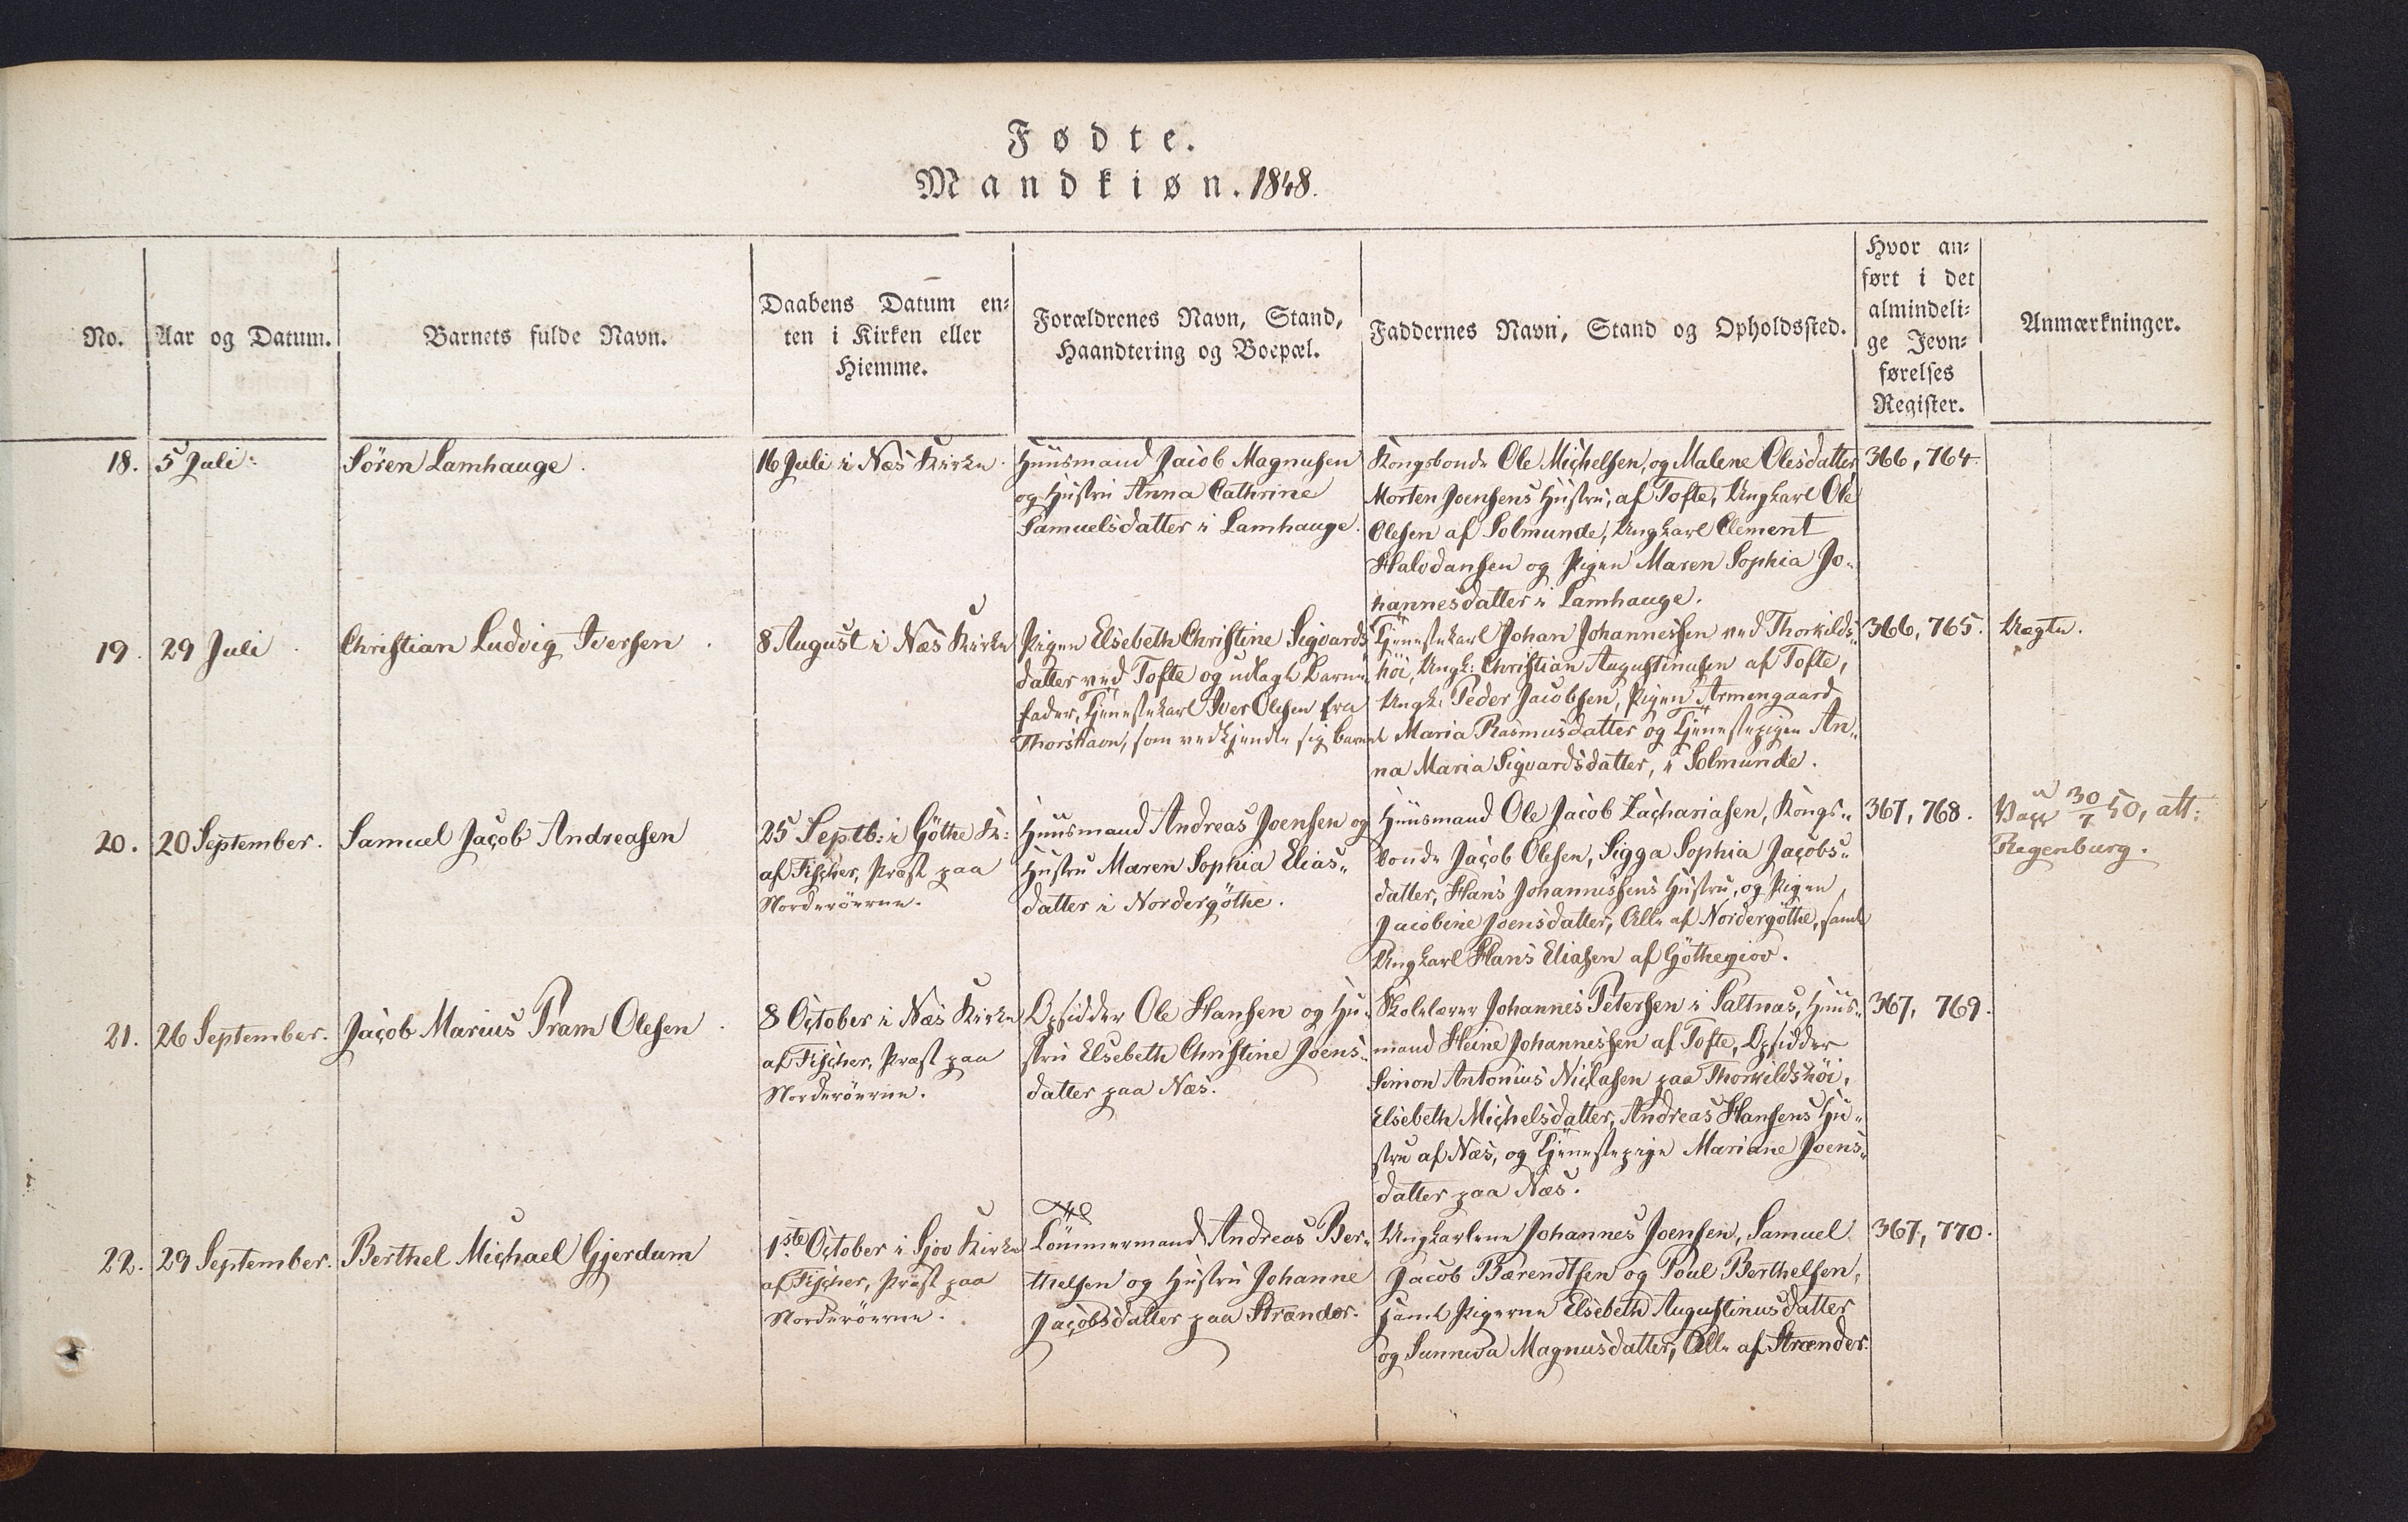 Fødte.
Mandkiøn. 1848.
No.
Aar og Datum.
Barnets fulde Navn.
Daabens Datum en=
ten i Kirken eller
Hiemme.
Forældrenes Navn, Stand,
Haandtering og Boepæl.
Faddernes Navn, Stand og Opholdssted.
Hvor an=
ført i det
almindeli=
ge Jevn=
førelses
Register.
Anmærkninger.
18.
5 Juli.
Sören Lamhauge.
16 Juli i Næs Kirke.
Huusmand Jacob Magnusen
og Hustru Anna Cathrine
Samuelsdatter i Lamhauge.
Kongsbonde Ole Michelsen, og Malene Olesdatter,
Morten Joensens Hustru, af Tofte, Ungkarl Ole
Olesen af Solmunde, Ungkarl Clement
Halvdansen og Pigen Maren Sophia Jo-
hannesdatter i Lamhauge.
366, 764.
19.
29 Juli.
Christian Ludvig Iversen.
8 August i Næs Kirke
Pigen Elsebeth Christine Sigvards-
datter ved Tofte og udlagt Barne-
fader, Tjenestekarl Iver Olesen fra
Thorshavn, som vedkjendte sig barnet
Tjenestekarl Johan Johannessen ved Thorkilds-
höi, Ungk: Christian Augustinusen af Tofte,
Ungk: Peder Jacobsen, Pigen Armengaard
Maria Rasmusdatter og Tjenestepigen An-
na Maria Sigvardsdatter, i Solmunde.
366, 765.
Uægte.
20.
20 September.
Samuel Jacob Andreasen
25 Septb: i Göthe K:
af Fischer, Præst paa
Norderöerne.
Huusmand Andreas Joensen og
Hustru Maren Sophia Elias-
datter i Nordergöthe.
Huusmand Ole Jacob Zachariasen, Kongs-
bonde Jacob Olesen, Sigga Sophia Jacobs-
datter, Hans Johannessens Hustru, og Pigen
Jacobine Joensdatter, Alle af Nordergöthe, samt
Ungkarl Hans Eliasen af Göthegiov.
367, 768.
30/7 50, att:
Regenburg.
21.
26 September.
Jacob Marius Pram Olesen.
8 October i Næs Kirke
af Fischer, Præst paa
Norderöerne.
Opsidder Ole Hansen og Hu-
stru Elsebeth Christine Joens-
datter paa Næs.
Skolelærer Johannes Petersen i Saltnæs, Huus-
mand Heine Johannessen af Tofte, Opsidder
Simon Antonius Niclasen paa Thorkildshöi,
Elsebeth Michelsdatter, Andreas Hansens Hu-
stru af Næs, og Tjenestepige Mariane Joens-
datter paa Næs.
367, 769.
22.
29 September.
Berthel Michael Gjerdum
1ste October i Sjov Kirke
af Fischer, Præst paa
Norderöerne.
Tömmermand Andreas Ber-
thelsen og Hustru Johanne
Jacobsdatter paa Strænder.
Ungkarlene Johannes Joensen, Samuel
Jacob Bærendtsen og Poul Berthelsen,
samt Pigerne Elsebeth Augustinusdatter
og Sunneva Magnusdatter, Alle af Strænder.
367, 770.